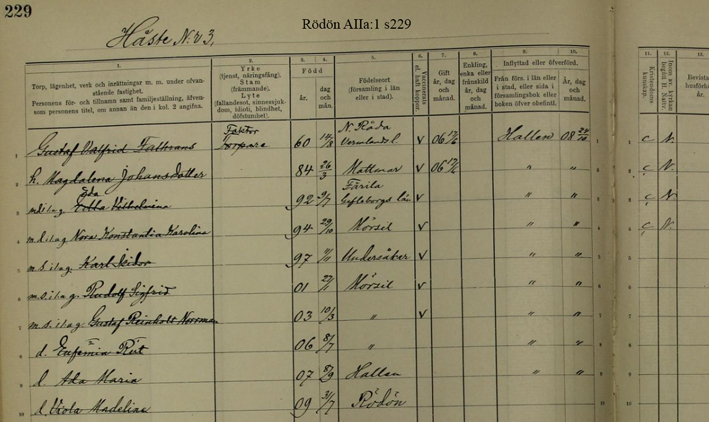 229
Rödön AIIa:1 s229
Håste N:o 3,
1. 2. 3. 4. 5. 6. 7. 8. 9. 10. 11. 12.
Torp, lägenhet, verk och inrättningar m. m. under ofvanstående fastighet.
Personens för- och tillnamn samt familjeställning, äfvensom personens titel, om annan än den i kol. 2 angifna.
Yrke
(tjenst, näringsfång).
Stam
(främmande).
Lyte
(fallandesot, sinnessjukdom, idioti, blindhet, döfstumhet).
Född
år.
dag och mån.
Födelseort
(församling i län eller i stad).
Vaccinerats el. haft koppor.
Gift
år, dag och månad.
Enkling, enka eller frånskild
år, dag och månad.
Inflyttad eller öfverförd.
Från förs. i län eller i stad, eller sida i församlingsbok eller boken öfver obefintl.
År, dag och månad.
Kristendomskunskap.
1 Gustaf Valfrid Faltrans Faktor Torpare 60 14/8 N. Råda Vermland v 06 Hallen 08
2 h. Magdalena Johansdotter 84 26/3 Mattmar v 06 " "
3 Ida Vilhelmina 92 9/7 Färila Gefleborgs län " "
4 Nora Konstantia Karolina 94 29/10 Mörsil v " "
5 Karl Isidor 97 Undersåker v " "
6 Rudolf Sigfrid 01 Mörsil v " "
7 Gustaf Reinhold Norrman 03 10/3 " v " "
8 d. Eufemia Rut 06 8/7 " " "
9 d Ada Maria 07 8/9 Hallen " "
10 d. Viola Madelina 09 31/7 Rödön